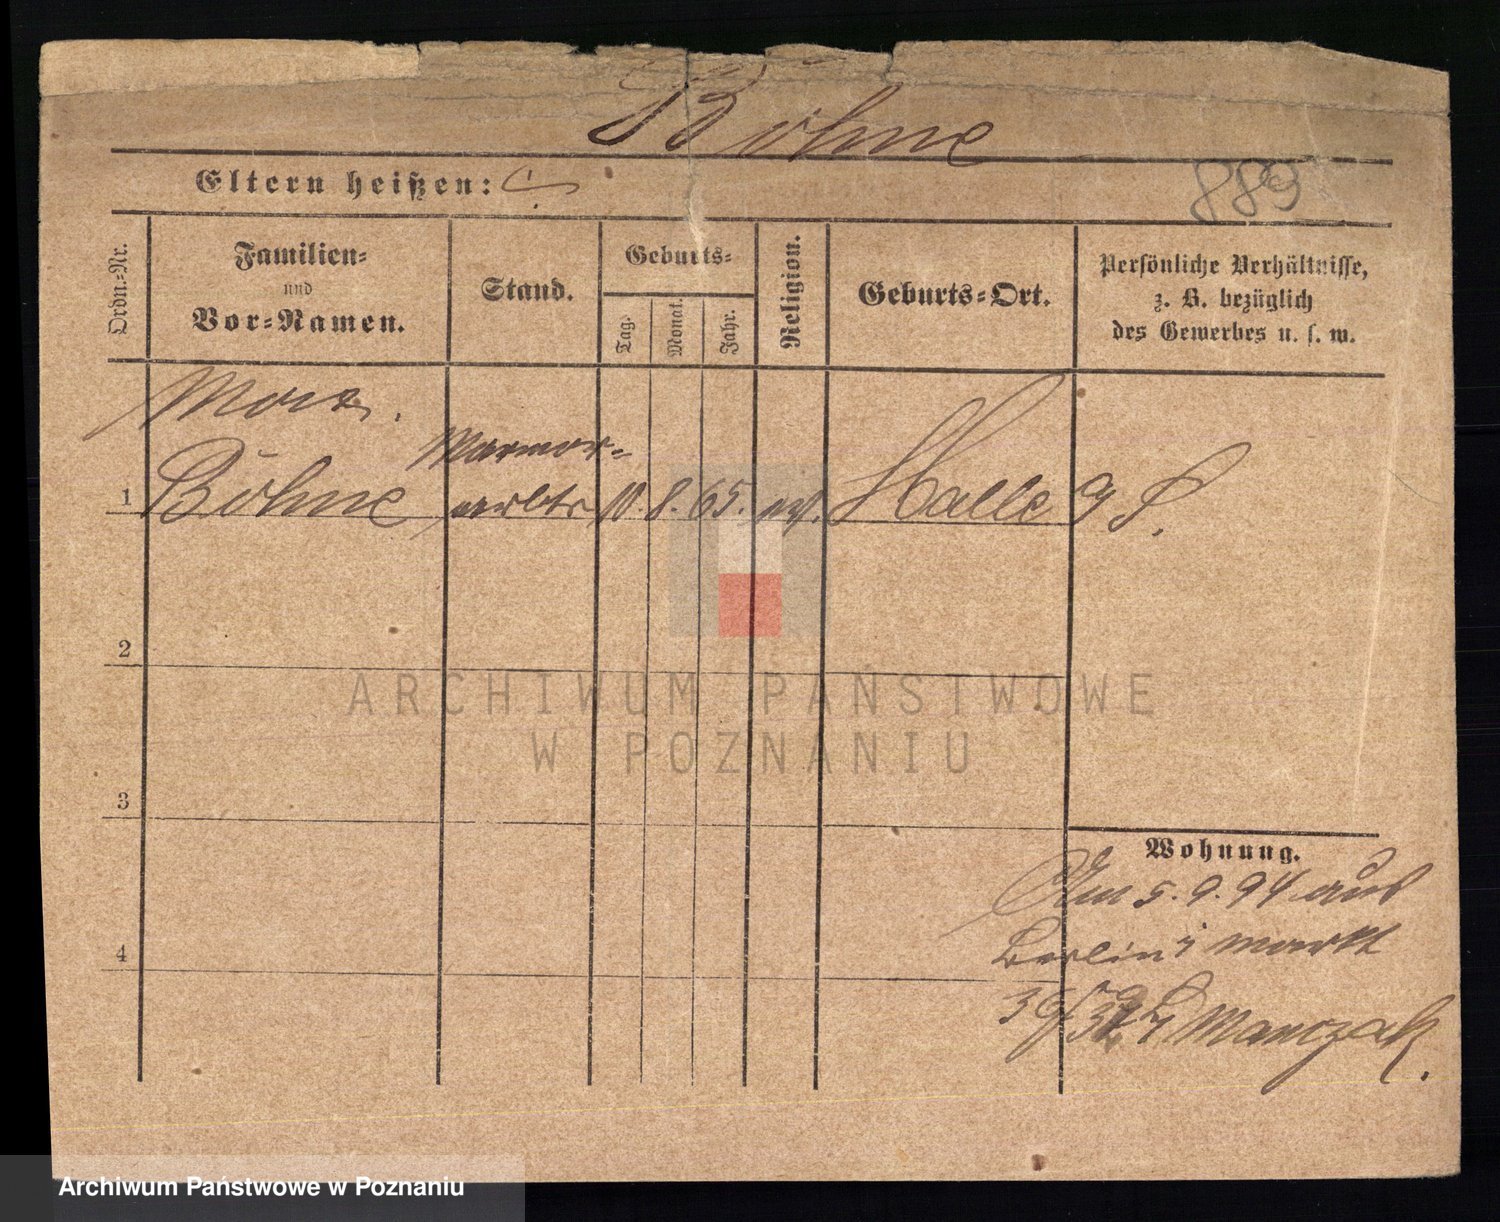 Böhne
Eltern heißen:
889
Ordn.-Nr.
Familien-
und
Vor-Namen.
Stand.
Geburts-
Tag.
Monat.
Jahr.
Religion.
Geburts-Ort.
Persönliche Verhältnisse,
z. B. bezüglich
des Gewerbes u. s. w.
Marmor-
1 Böhne arbtr 10. 8. 65. ev. Halle a S.
2
3
4
Wohnung.
Am 5. 9. 94 aus
Berlin markt
Marczak.
ARCHIWUM PAŃSTWOWE
W POZNANIU
Archiwum Państwowe w Poznaniu